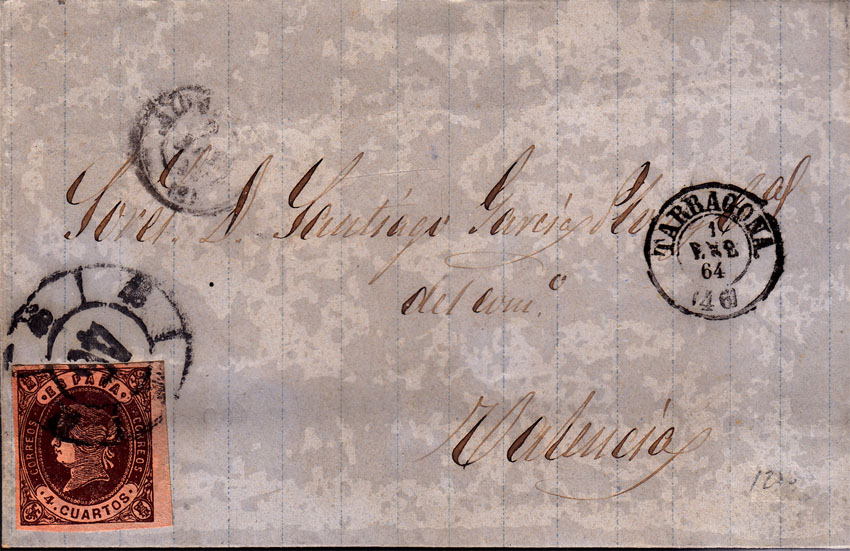 Sores. D. Santiago García
del com.º
Valencia
TARRAGONA
1
ENE
64
(46)
ESPAÑA
CORREOS CORREOS
4 CUARTOS